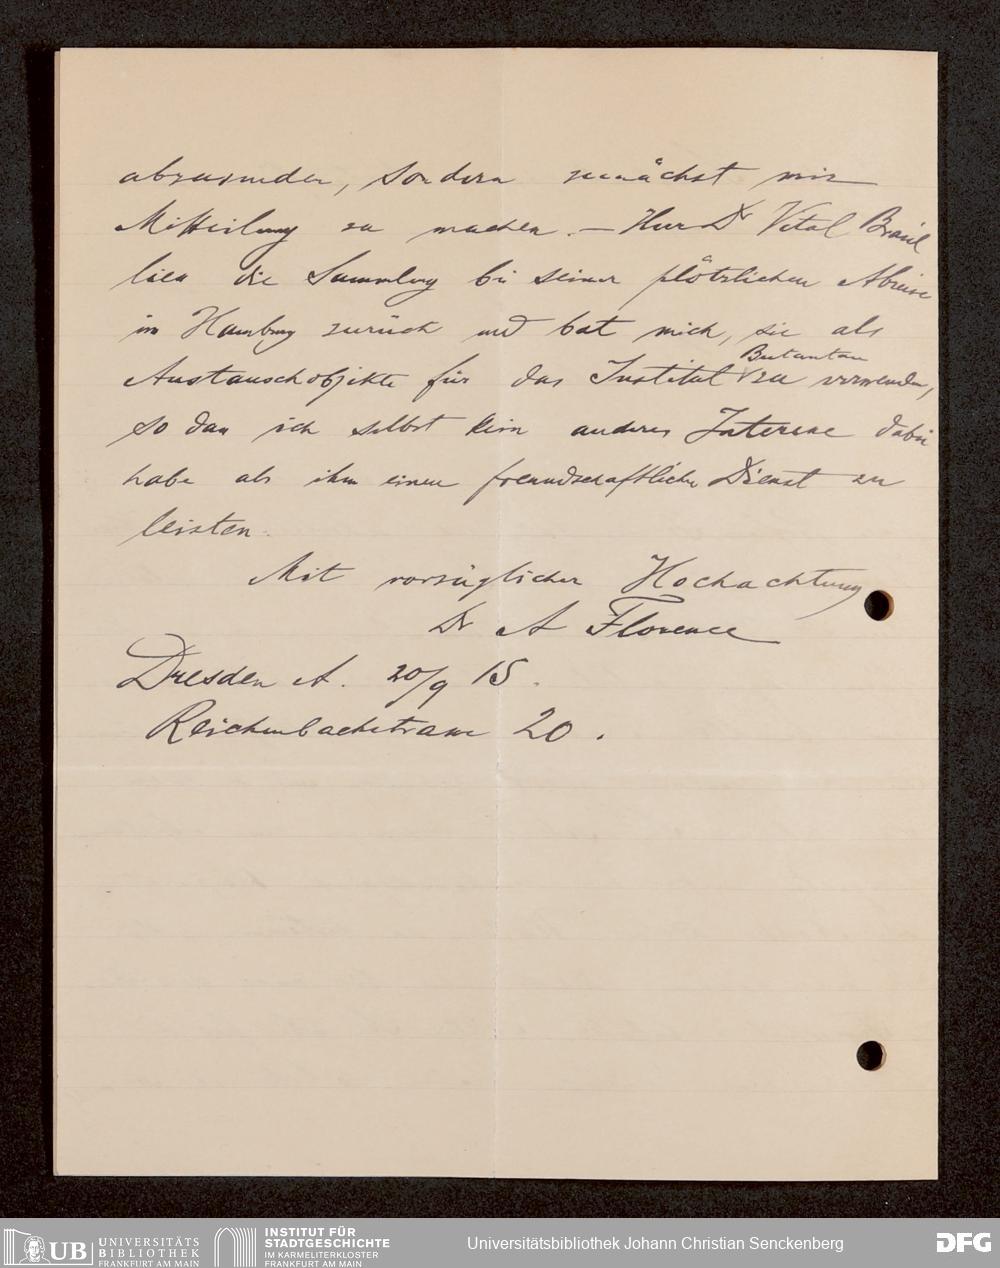 abzusenden, sondern zunächst mir
Mitteilung zu machen. – Herr Dr Vital Brazil
liess die Sammlung bei seiner plötzlichen Abreise
in Hamburg zurück und bat mich, sie als
Austauschobjekte für das Institut Butantan zu verwenden,
so dass ich selbst kein anderes Interesse dabei
habe als ihm einen freundschaftlichen Dienst zu
leisten.
Mit vorzüglicher Hochachtung
Dr A Florence
Dresden A. 20/9 15.
Reichenbachstrasse 20.
UB UNIVERSITÄTS
BIBLIOTHEK
FRANKFURT AM MAIN
INSTITUT FÜR
STADTGESCHICHTE
IM KARMELITERKLOSTER
FRANKFURT AM MAIN
Universitätsbibliothek Johann Christian Senckenberg
DFG